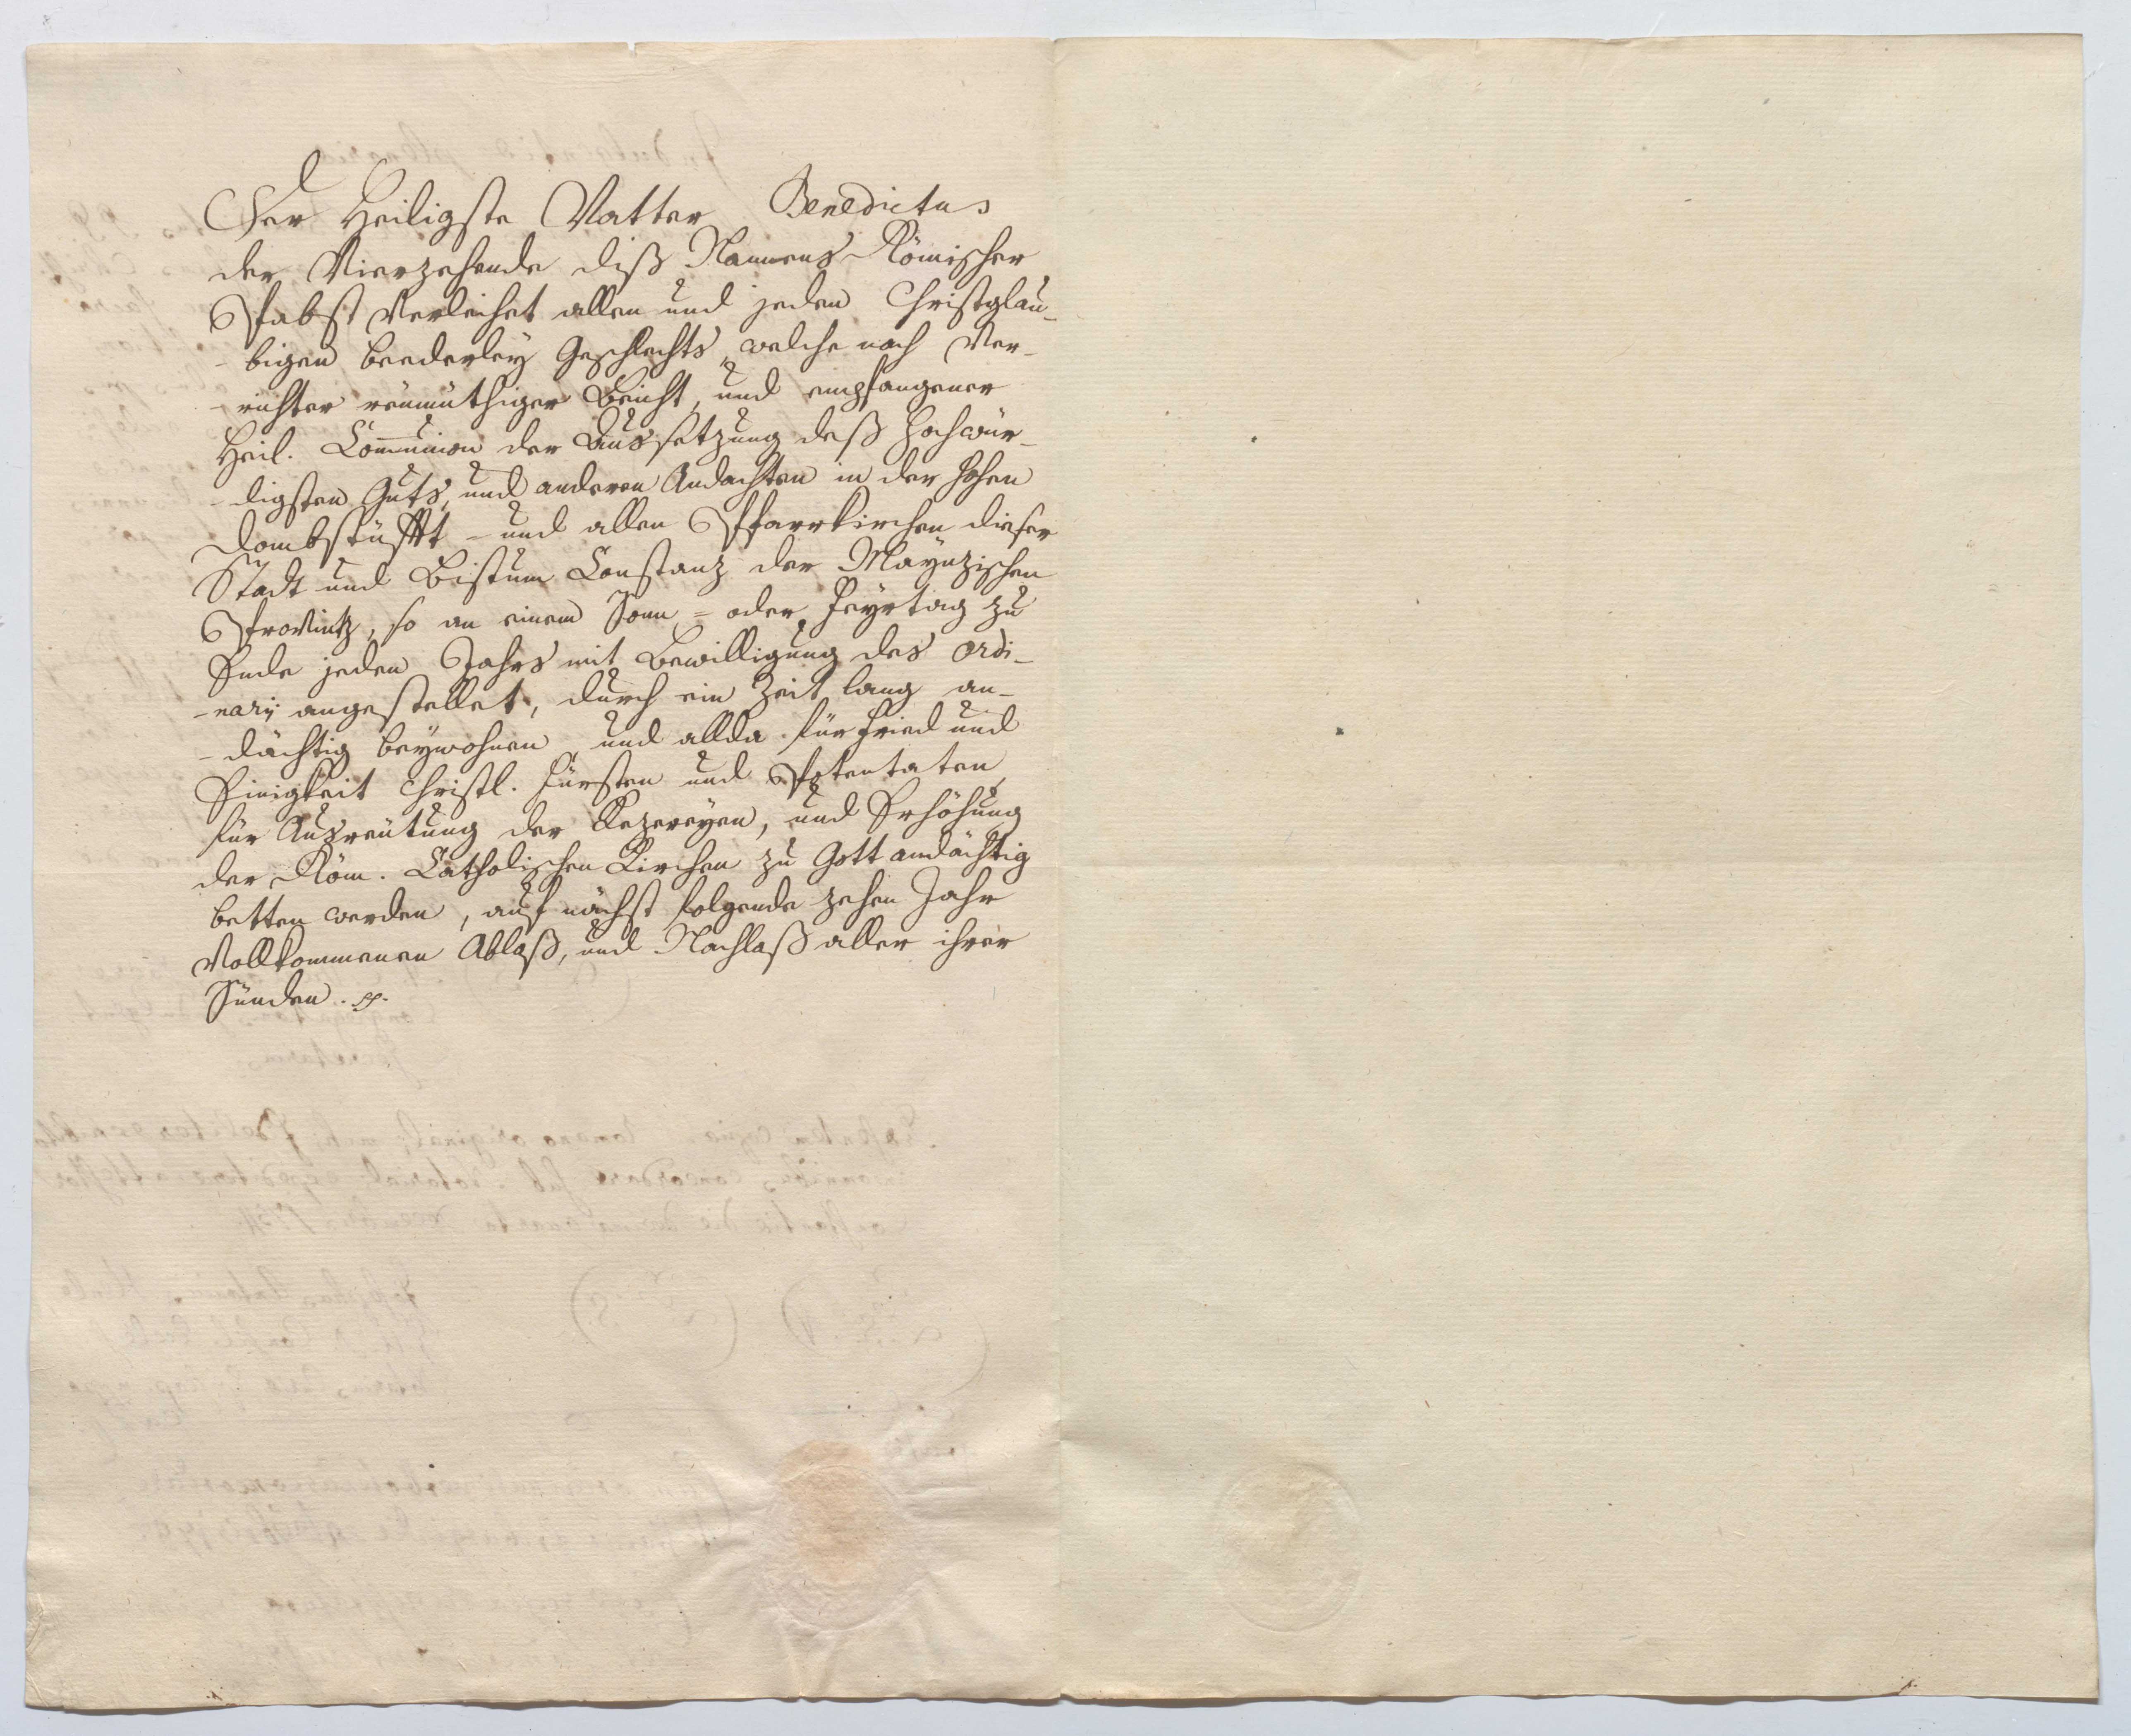 Der Heiligste Vatter Benedictus
der Vierzehende diß Nammens Römischer
Pabst Verleihet allen und jeden Christglau-
-bigen beederley Geschlechts, welche nach Ver-
-richter reümüthiger Beicht, und empfangener
Heil. Communion der Aussetzung deß Hochwür-
-digsten Guts, und anderen Andachten in der hohen
Dombstüfft- und allen Pfarrkirchen dieser
Stadt und Bistum Constanz der Maynzischen
Provintz, so an einem Sonn- oder Feyrtag zu
Ende jeden Jahrs mit Bewilligung des Ordi-
-narij angestellet, durch ein Zeit lang an-
-dächtig beywohnen und allda für Fried und
Einigkeit Christl. Fürsten und Potentaten,
für Ausreütung der Kezereyen, und Erhöhung
der Röm. Catholischen Kirchen zu Gott andächtig
betten werden, auf nächst folgende zehen Jahr
Vollkommenen Ablaß, und Nachlaß aller ihrer
Sünden.